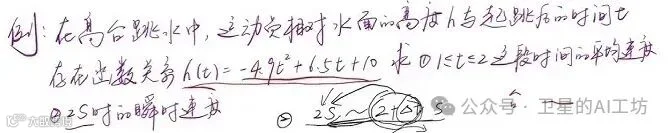 例:在高台跳水中,运动员相对水面的高度h与起跳后的时间t
存在函数关系h(t)=-4.9t²+6.5t+10 求①1≤t≤2这段时间的平均速度
②2S时的瞬时速度 ② 2S~(2+Δt)S
大盘数据
公众号·卫星的AI工坊